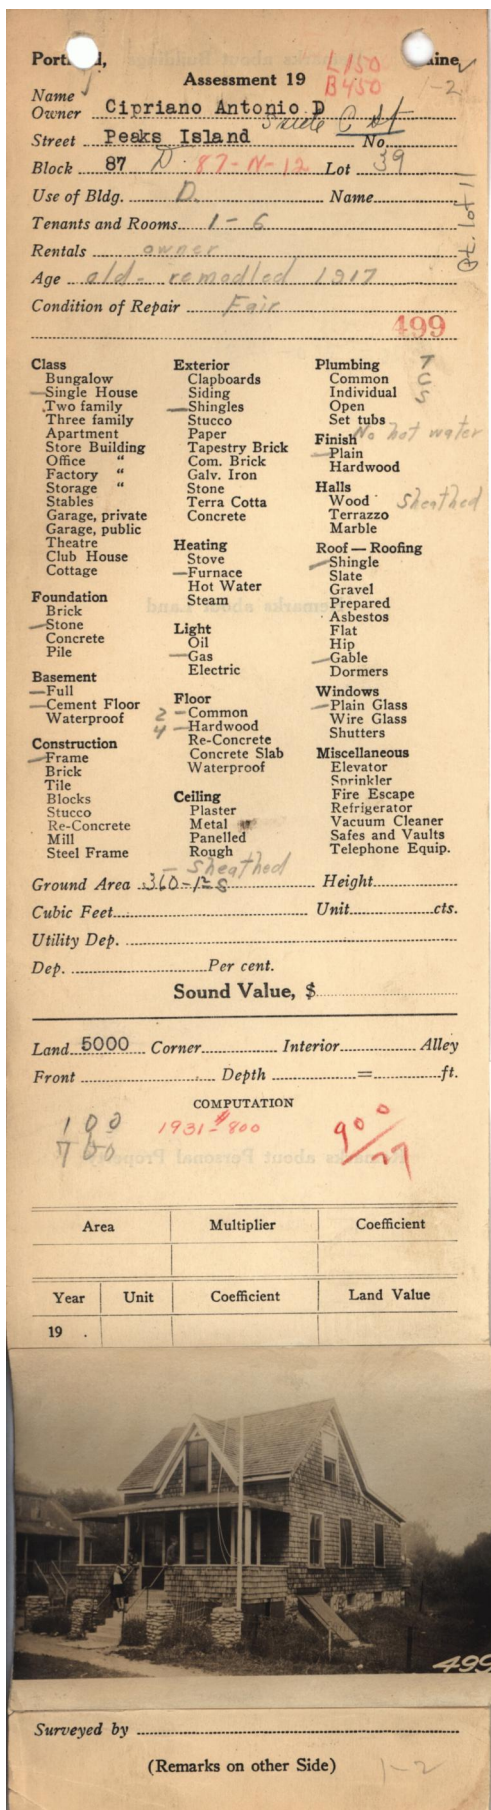 Portland, Maine
Assessment 19
L 150
B 450
1-2
Name
Owner Cipriano Antonio D
Street Peaks Island C St No.
Block 87 D 87-N-12 Lot 39
Pt. lot 11
Use of Bldg. D. Name
Tenants and Rooms 1-6
Rentals owner
Age old - remodled 1917
Condition of Repair Fair
499
Class
Bungalow
Single House
Two family
Three family
Apartment
Store Building
Office "
Factory "
Storage "
Stables
Garage, private
Garage, public
Theatre
Club House
Cottage
Foundation
Brick
Stone
Concrete
Pile
Basement
Full
Cement Floor
Waterproof
Construction
Frame
Brick
Tile
Blocks
Stucco
Re-Concrete
Mill
Steel Frame
Exterior
Clapboards
Siding
Shingles
Stucco
Paper
Tapestry Brick
Com. Brick
Galv. Iron
Stone
Terra Cotta
Concrete
Heating
Stove
Furnace
Hot Water
Steam
Light
Oil
Gas
Electric
Floor
2 Common
4 Hardwood
Re-Concrete
Concrete Slab
Waterproof
Ceiling
Plaster
Metal
Panelled
Rough
- Sheathed
Plumbing T
Common C
Individual S
Open
Set tubs
No hot water
Finish
Plain
Hardwood
Halls
Wood Sheathed
Terrazzo
Marble
Roof — Roofing
Shingle
Slate
Gravel
Prepared
Asbestos
Flat
Hip
Gable
Dormers
Windows
Plain Glass
Wire Glass
Shutters
Miscellaneous
Elevator
Sprinkler
Fire Escape
Refrigerator
Vacuum Cleaner
Safes and Vaults
Telephone Equip.
Ground Area 360-1½ S Height
Cubic Feet Unit cts.
Utility Dep.
Dep. Per cent.
Sound Value, $
Land 5000 Corner Interior Alley
Front Depth = ft.
COMPUTATION
100
700
1931-$800
900/27
Area Multiplier Coefficient
Year Unit Coefficient Land Value
19 .
499
Surveyed by
(Remarks on other Side)
1-2